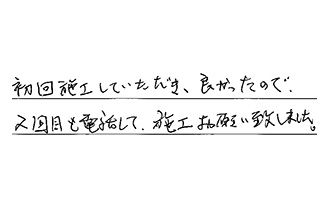 初回施工していただき、良かったので、
2回目も電話して、施工お願い致しました。